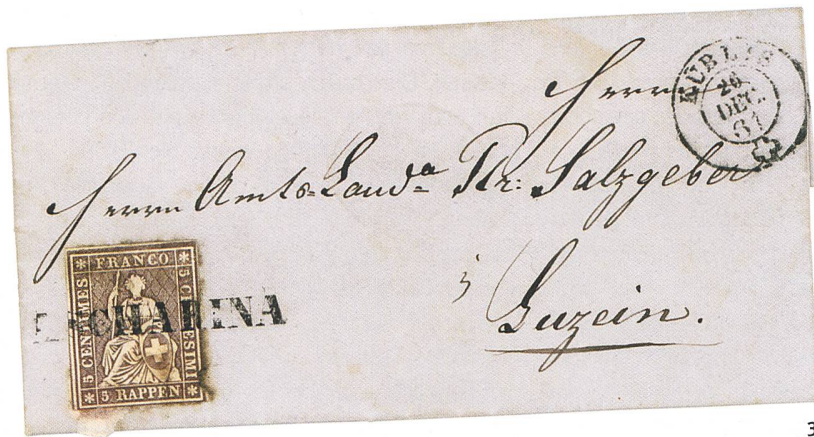 KÜBLIS
26
DEC.
61
Herrn
Herrn Amts=Landª Salzgeber
Luzein.
FRANCO
5 CENTIMES
5 CENTESIMI
5 RAPPEN
CHARINA
3